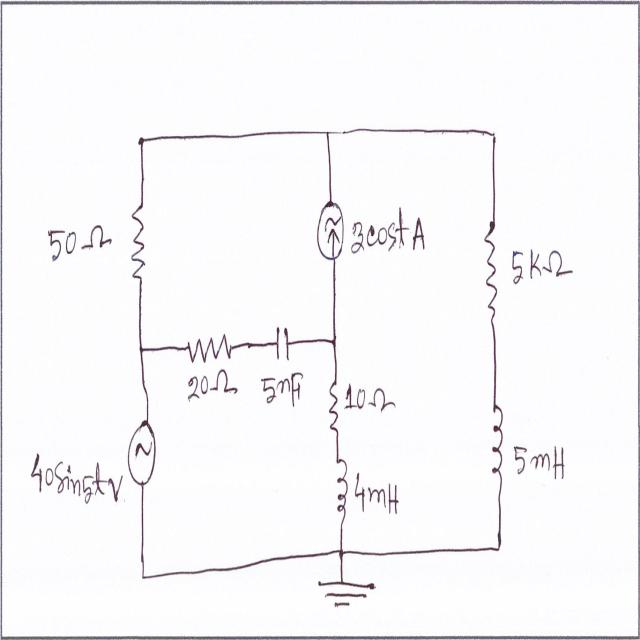 50Ω
3cost A
5kΩ
20Ω
5nF
10Ω
40sin5t V
4mH
5mH